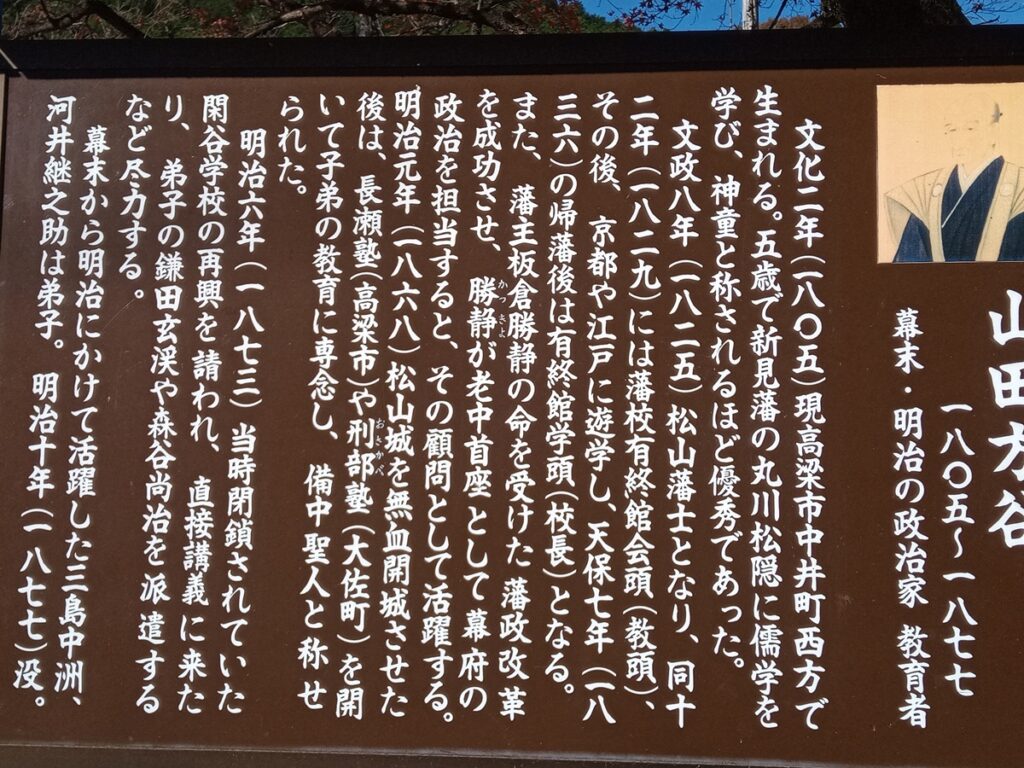 山田方谷
一八〇五～一八七七
幕末・明治の政治家 教育者
文化二年(一八〇五)現高梁市中井町西方で
生まれる。五歳で新見藩の丸川松隠に儒学を
学び、神童と称されるほど優秀であった。
文政八年(一八二五)松山藩士となり、同十
二年(一八二九)には藩校有終館会頭(教頭)、
その後、京都や江戸に遊学し、天保七年(一八
三六)の帰藩後は有終館学頭(校長)となる。
また、藩主板倉勝静の命を受けた藩政改革
を成功させ、勝静が老中首座として幕府の
かつきよ
政治を担当すると、その顧問として活躍する。
明治元年(一八六八)松山城を無血開城させた
後は、長瀬塾(高梁市)や刑部塾(大佐町)を開
おさかべ
いて子弟の教育に専念し、備中聖人と称せ
られた。
明治六年(一八七三)当時閉鎖されていた
閑谷学校の再興を請われ、直接講義に来た
り、弟子の鎌田玄渓や森谷尚治を派遣する
など尽力する。
幕末から明治にかけて活躍した三島中洲、
河井継之助は弟子。明治十年(一八七七)没。